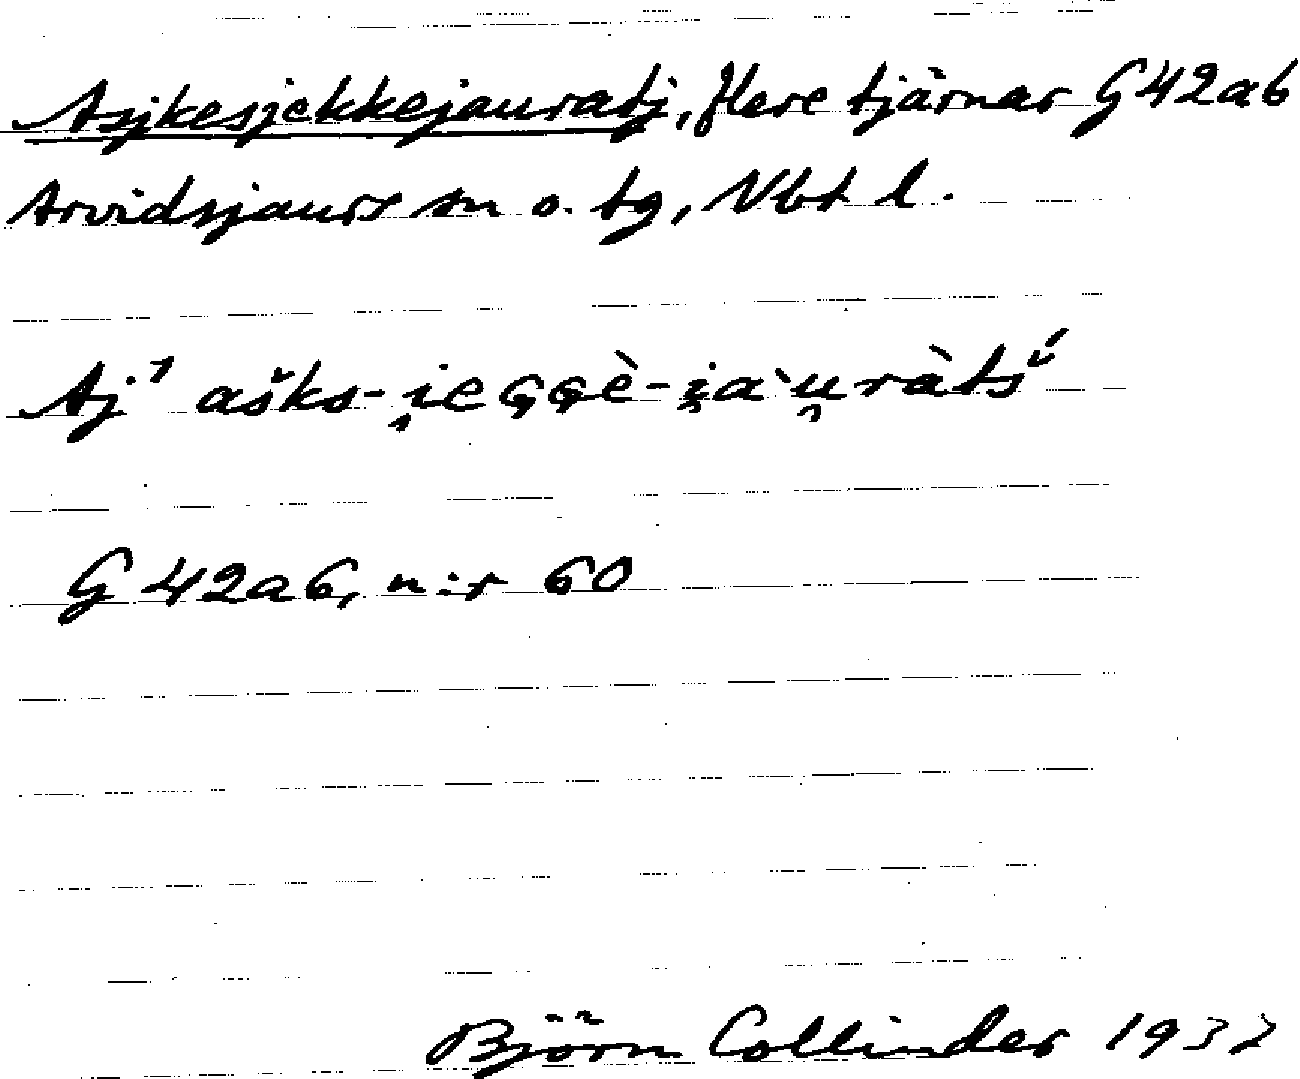 Asjkesjekkejauratj, flere tjärnar G42a6
Arvidsjaurs sn o. tg, Nbt l.
Aj¹ aškɒ-i̯eɢɢè-i̯a`u̯ràtš́
G 42a6, n:r 60
Björn Collinder 1937